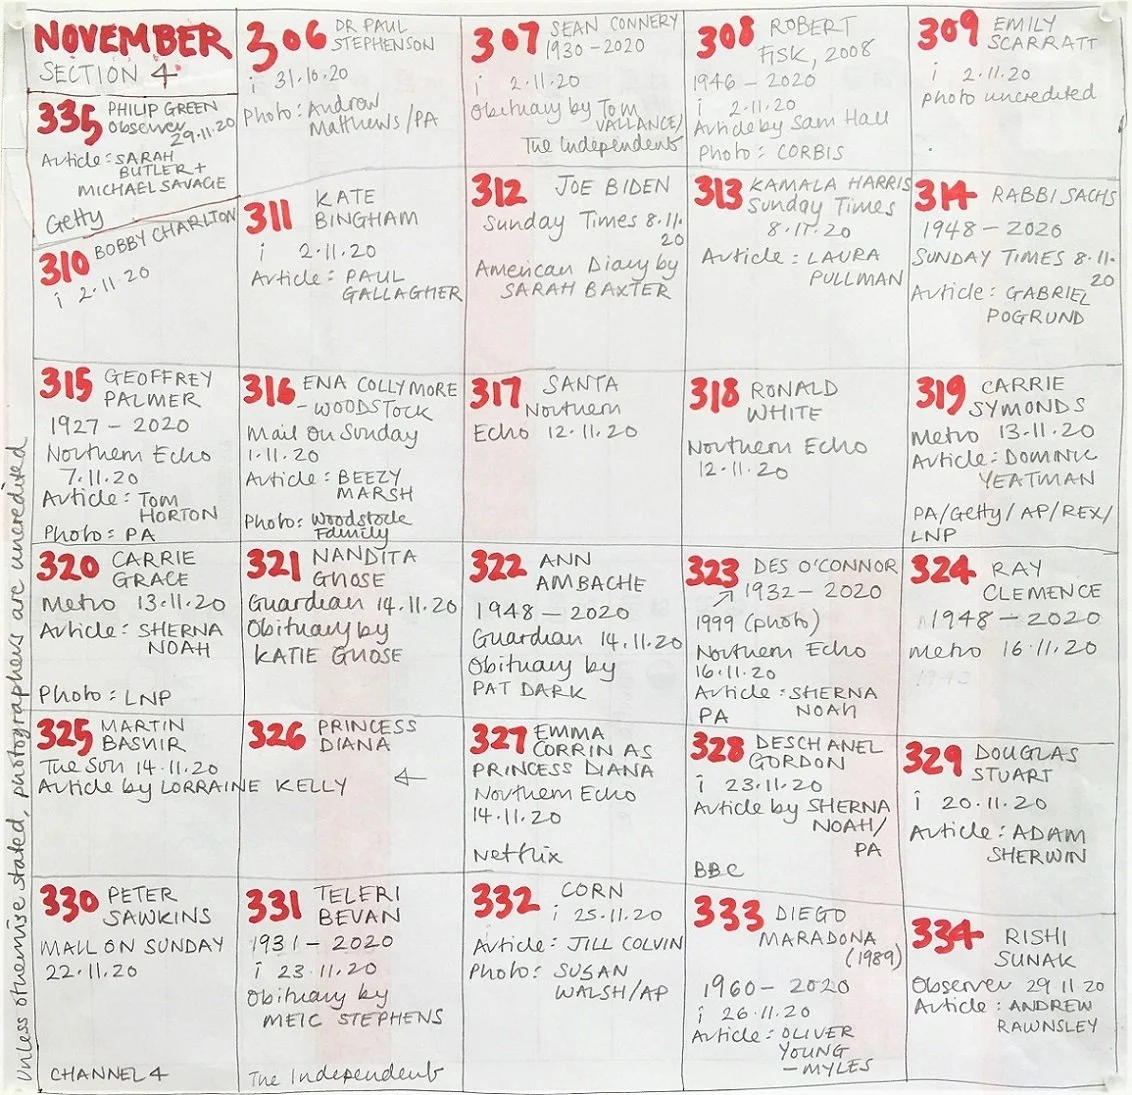 NOVEMBER
SECTION 4
335 PHILIP GREEN
Observer
29.11.20
Article: SARAH
BUTLER +
MICHAEL SAVAGE
Getty
306 DR PAUL
STEPHENSON
i 31.10.20
Photo: Andrew
Matthews/PA
307 SEAN CONNERY
1930-2020
i 2.11.20
Obituary by Tom
VALLANCE/
The Independent
308 ROBERT
FISK, 2008
1946-2020
i 2.11.20
Article by Sam Hall
Photo: CORBIS
309 EMILY
SCARRATT
i 2.11.20
photo uncredited
310 BOBBY CHARLTON
i 2.11.20
311 KATE
BINGHAM
i 2.11.20
Article: PAUL
GALLAGHER
312 JOE BIDEN
Sunday Times 8.11.
20
American Diary by
SARAH BAXTER
313 KAMALA HARRIS
Sunday Times
8.11.20
Article: LAURA
PULLMAN
314 RABBI SACHS
1948-2020
SUNDAY TIMES 8.11.
20
Article: GABRIEL
POGRUND
315 GEOFFREY
PALMER
1927-2020
Northern Echo
7.11.20
Article: TOM
HORTON
Photo: PA
316 ENA COLLYMORE
-WOODSTOCK
Mail On Sunday
1.11.20
Article: BEEZY
MARSH
Photo: Woodstock
Family
317 SANTA
Northern
Echo 12.11.20
318 RONALD
WHITE
Northern Echo
12.11.20
319 CARRIE
SYMONDS
Metro 13.11.20
Article: DOMINIC
YEATMAN
PA/Getty/AP/REX/
LNP
320 CARRIE
GRACE
Metro 13.11.20
Article: SHERNA
NOAH
Photo: LNP
321 NANDITA
GHOSE
Guardian 14.11.20
Obituary by
KATIE GHOSE
322 ANN
AMBACHE
1948-2020
Guardian 14.11.20
Obituary by
PAT DARK
323 DES O'CONNOR
↗ 1932-2020
1999 (photo)
Northern Echo
16.11.20
Article: SHERNA
PA NOAH
324 RAY
CLEMENCE
1948-2020
Metro 16.11.20
325 MARTIN
BASHIR
The Sun 14.11.20
Article by LORRAINE KELLY
326 PRINCESS
DIANA
←
327 EMMA
CORRIN AS
PRINCESS DIANA
Northern Echo
14.11.20
Netflix
328 DESCHANEL
GORDON
i 23.11.20
Article by SHERNA
NOAH/
PA
BBC
329 DOUGLAS
STUART
i 20.11.20
Article: ADAM
SHERWIN
330 PETER
SAWKINS
MAIL ON SUNDAY
22.11.20
CHANNEL 4
331 TELERI
BEVAN
1931-2020
i 23.11.20
Obituary by
MEIC STEPHENS
The Independent
332 CORN
i 25.11.20
Article: JILL COLVIN
Photo: SUSAN
WALSH/AP
333 DIEGO
MARADONA
(1989)
1960-2020
i 26.11.20
Article: OLIVER
YOUNG
-MYLES
334 RISHI
SUNAK
Observer 29 11 20
Article: ANDREW
RAWNSLEY
Unless otherwise stated, photographers are uncredited